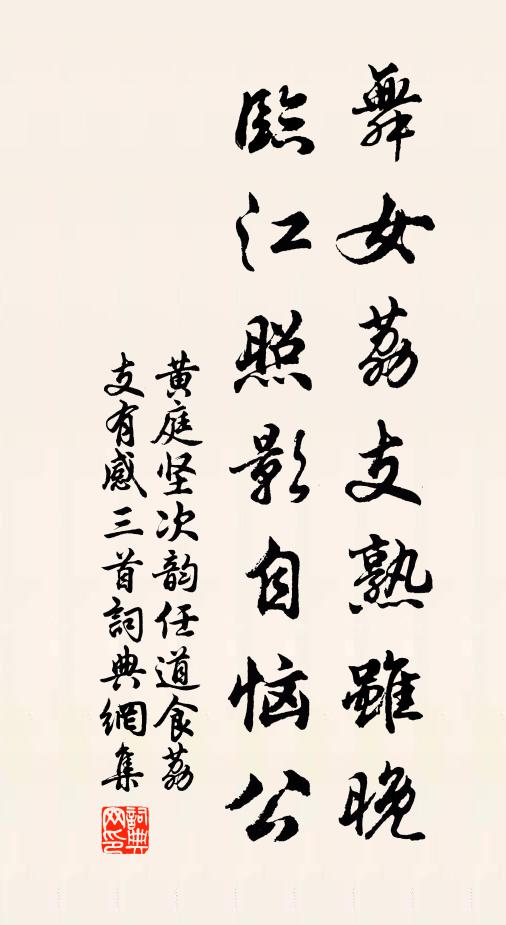 舞女荔支熟雖晚
臨江照影自恼公
黄庭坚次韵任道食荔
支有感三首詞典網集
詞典
网印